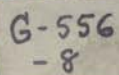 G-556
-8